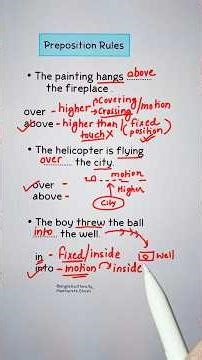 Preposition Rules
• The painting hangs above
the fireplace.
over - higher Covering
Crossing/motion
above - higher than (fixed
touch X position)
• The helicopter is flying
over the city.
over - motion
above - Higher
City
• The boy threw the ball
into the well.
in - fixed/inside Well
into - motion inside